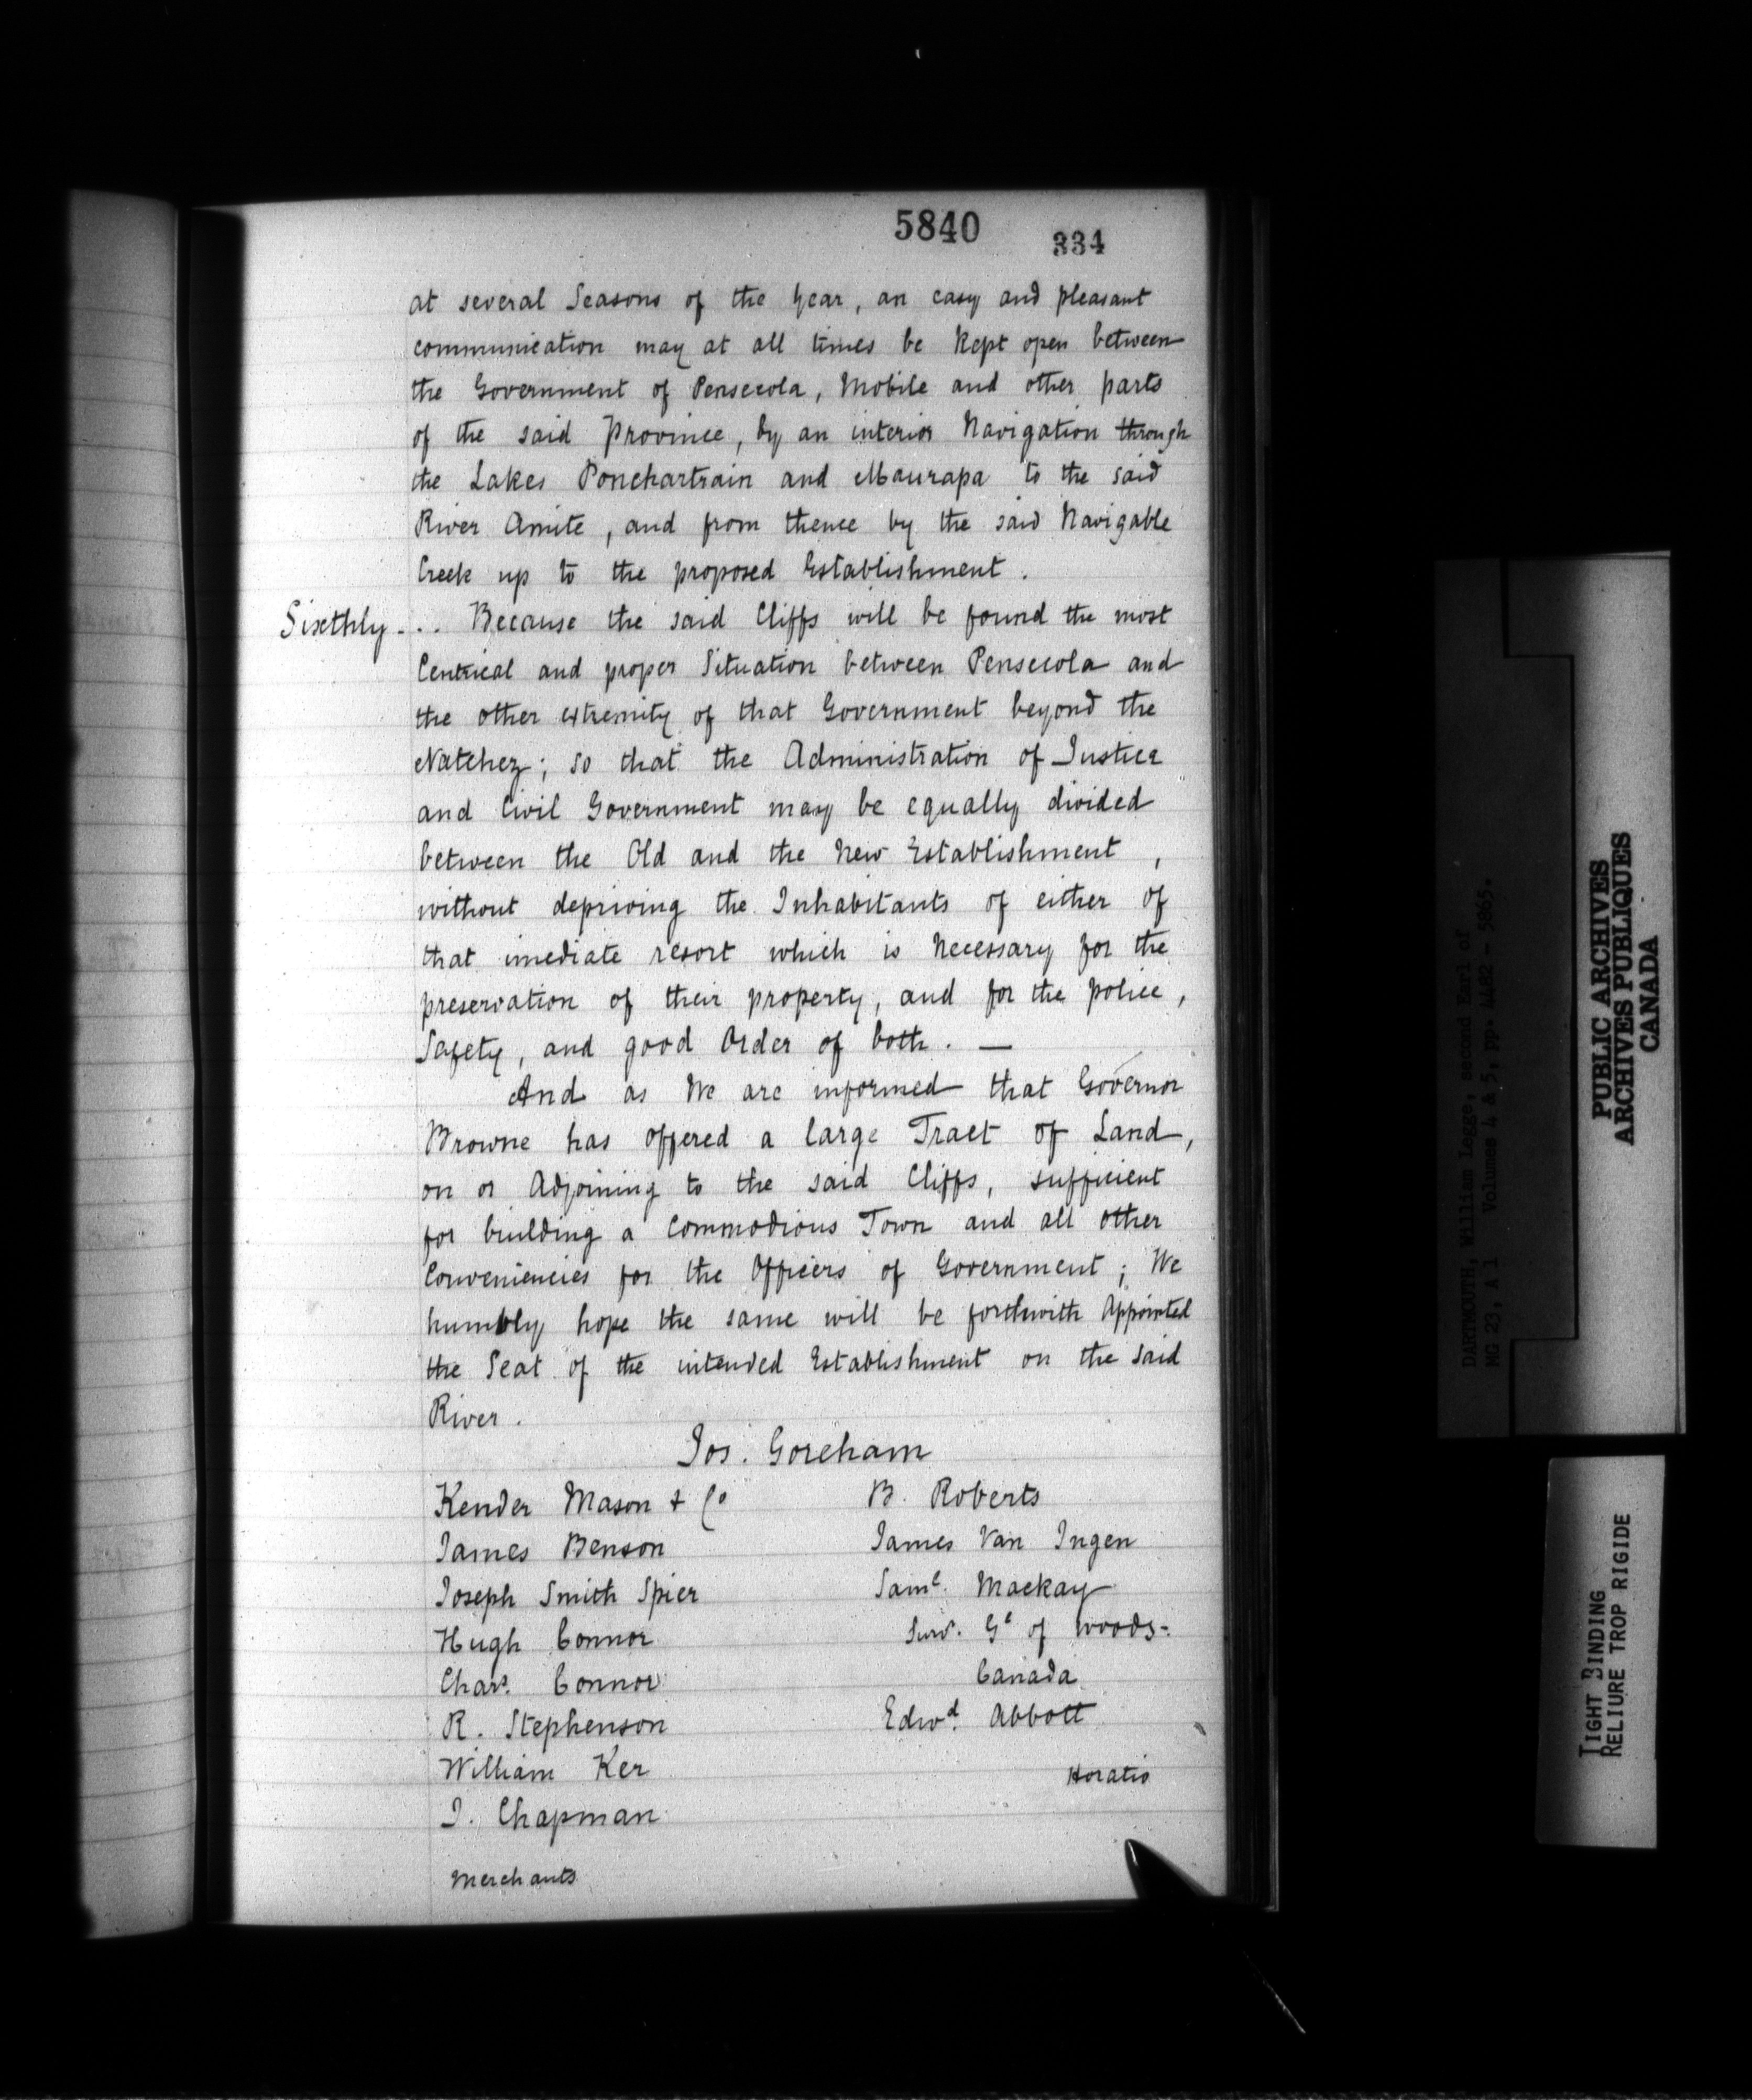 5840
334
at several Seasons of the Year, an easy and pleasant
communication may at all times be Kept open between
the Government of Pensecola, Mobile and other parts
of the said Province, by an interior Navigation through
the Lakes Ponchartrain and Maurapa to the said
River Amite, and from thence by the said Navigable
Creek up to the proposed Establishment.
Sixthly... Because the said Cliffs will be found the most
Centrical and proper Situation between Pensecola and
the other extremity of that Government beyond the
Natchez; so that the Administration of Justice
and Civil Government may be equally divided
between the Old and the New Establishment,
without depriving the Inhabitants of either of
that imediate resort which is Necessary for the
preservation of their property, and for the police,
Safety, and good Order of both. —
And as We are informed that Governor
Browne has offered a large Tract of Land,
on or Adjoining to the said Cliffs, sufficient
for building a Commodious Town and all other
Conveniencies for the Officers of Government; We
humbly hope the same will be forthwith Appointed
the Seat of the intended Establishment on the said
River.
Jos. Goreham
Kender Mason & Co
James Benson
Joseph Smith Spier
Hugh Connor
Chas. Connor
R. Stephenson
William Ker
J. Chapman
Merchants
B. Roberts
James Van Ingen
Saml. Mackay
Surv. Gl of Woods-
Canada
Edwd. Abbott
Horatio
DARTMOUTH, William Legge, second Earl of
MG 23, A 1 Volumes 4 & 5, pp. 4482 - 5865.
PUBLIC ARCHIVES
ARCHIVES PUBLIQUES
CANADA
TIGHT BINDING
RELIURE TROP RIGIDE